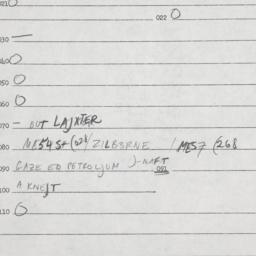 010 O
022 O
030 —
040 O
050 O
060 O
070 — BUT LAJNTER
080 (024/ZILBERNE / MES7 (268
090 GAZE ED PETROLJUM )-NAFT
091
100 A KNEJT
110 O